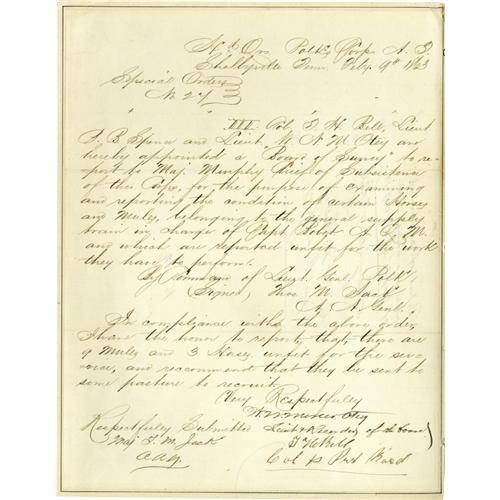 Hd Qrs Polk's Corps A. T.
Shelbyville Tenn. Feby. 9th 1863
Special Orders
No 27
III. Col. T H Bell, Lieut
T. B. Spence and Lieut. W. N. M Otey are
hereby appointed a "Board of Survey" to re-
port to Maj. Murphy Chief of Subsistence
of this Corps, for the purpose of examining
and reporting the condition of certain Horses
and Mules, belonging to the general supply
train in charge of Capt A. Q. M.
and which are reported unfit for the work
they have to perform.
By Command of Lieut. Genl. Polk,
Signed, Thos M. Jack
A. A. Genl.
In compliance with the above order,
I have the honor to report, that, there are
9 Mules and 3 Horses, unfit for the serv-
vice, and recommend that they be sent to
some pasture to recruit.
Very Respectfully
Otey
Respectfully Submitted Lieut & Recorder of the board
Maj T. M. Jack T H Bell
A.A.G. Col & Prst Board